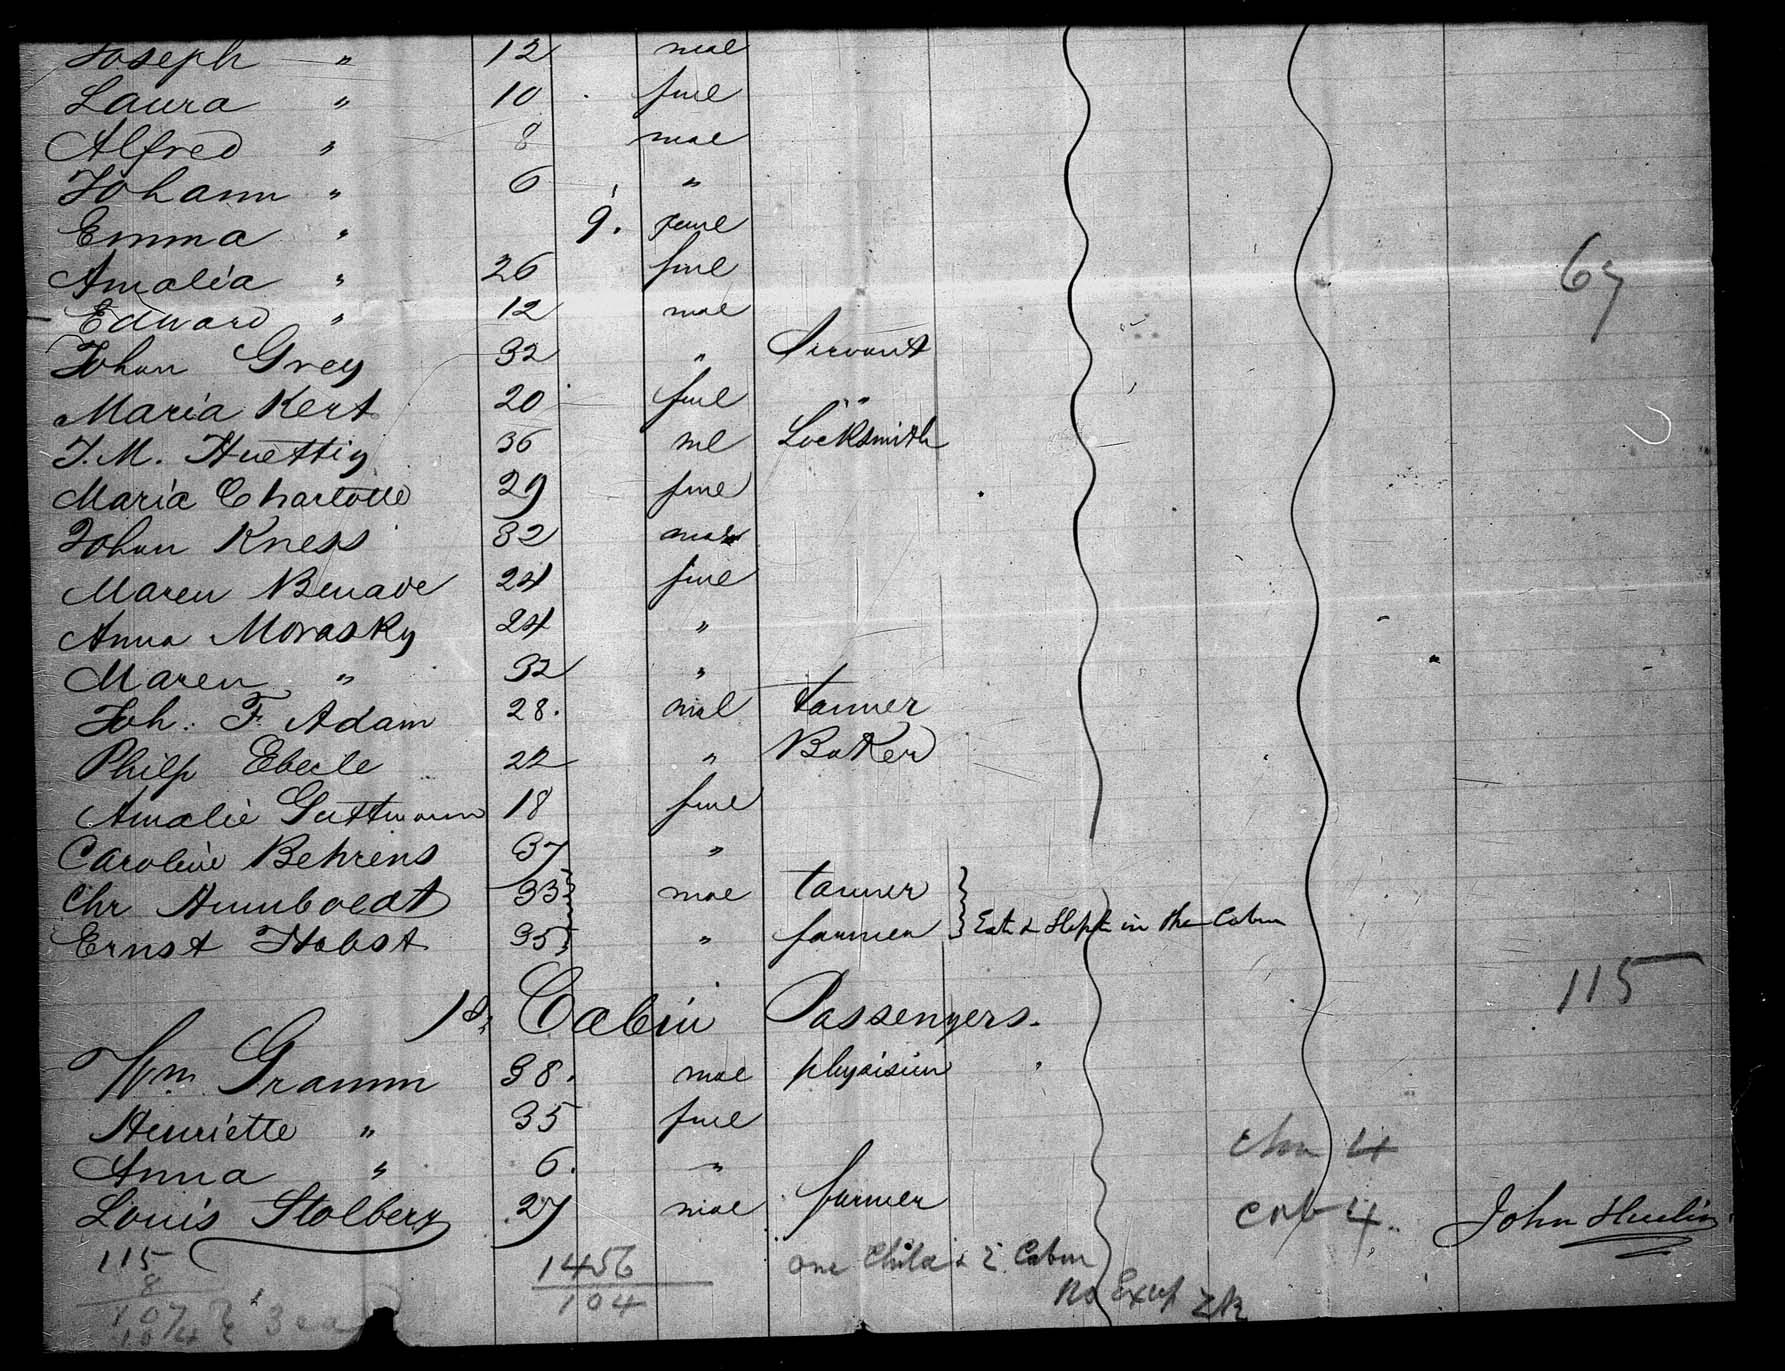 Joseph " 12 mal
Laura " 10 fml
Alfred " 8 mal
Johann " 6 "
Emma " 9. fml
Amalia " 26 fml
67
Edward " 12 mal
Johan Grey 32 " Servant
Maria Kert 20 fml "
J. M. Huettig 36 ml Locksmith
Maria Charlotte 29 fml
Johan Kness 32 mal
Maren Benade 24 fml
Anna Morasky 24 "
Maren " 32 "
Joh. F. Adam 28. mal tanner
Philp Eberle 22 " Baker
Amalie Guttmann 18 fml
Caroline Behrens 37 "
Chr Humboldt 33 mal tanner
Ernst Habst 35 " farmer } Eat & Slept in the Cabin
115
1st Cabin Passengers.
Wm. Gramm 38. mal physisien
Henriette " 35 fml
Anna " 6. " 4
Louis Stolberg 27 mal farmer cab 4. John
115 1456 one Child & 2 Cabin
8 104 No
107 3
104